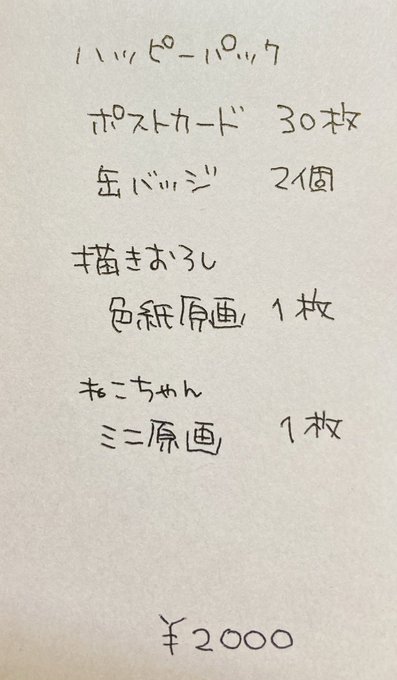 ハッピーパック
ポストカード 30枚
缶バッジ 2個
描きおろし
色紙原画 1枚
ねこちゃん
ミニ原画 1枚
¥2000